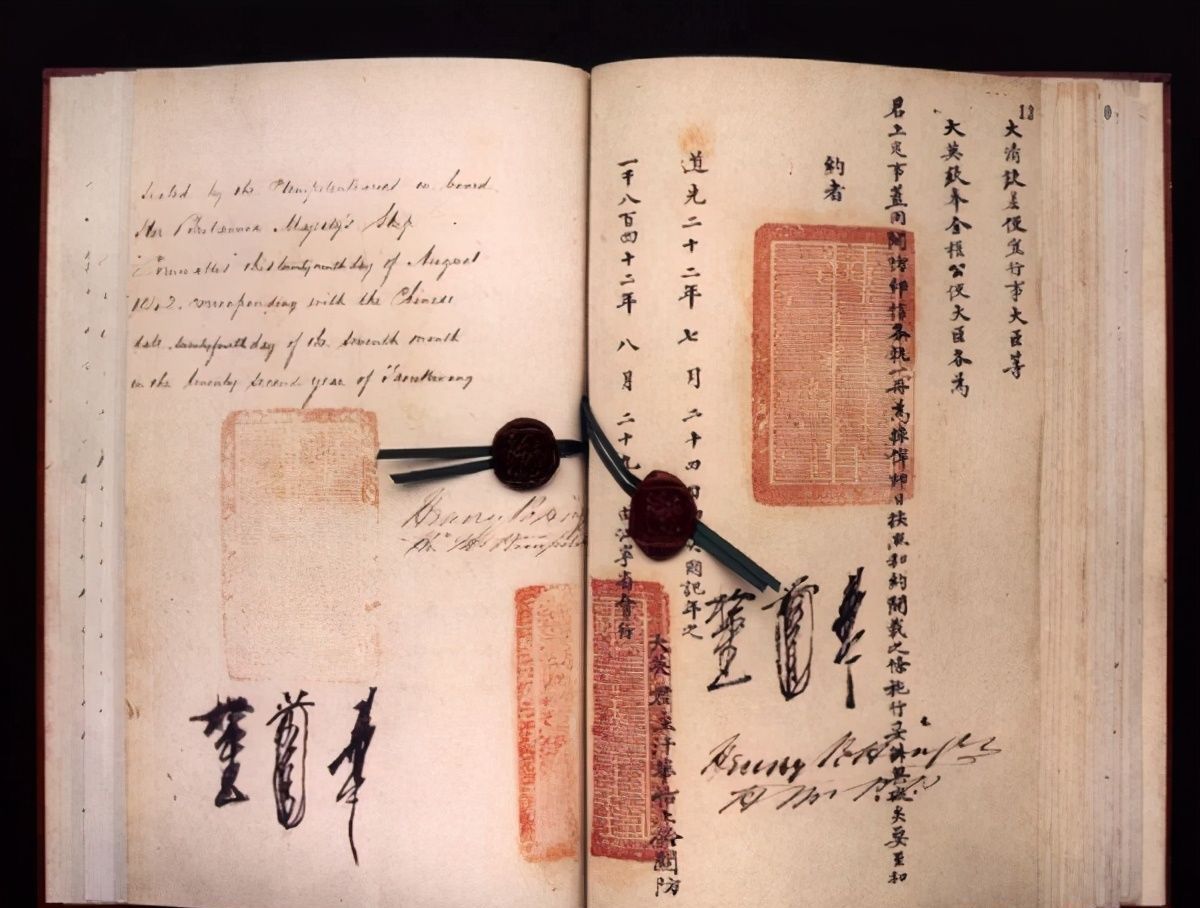 by the Plenipotentiaries on board
Her Britannic Majesty's Ship
Cornwallis this twenty ninth day of August
1842. corresponding with the Chinese
date, twenty fourth day of the seventh month
in the twenty second year of Taoukwang
Henry Pottinger
12
大清欽差便宜行事大臣等
大英欽奉全權公使大臣各為
君上定事蓋用關防印信各執一冊為據俾即日按照和約開載之條施行妥辦無礙矣要至和
約者
道光二十二年七月二十四日即英國記年之
一千八百四十二年八月二十九日由江寧省會行
大英君主汗華船上鈐關防
Henry Pottinger